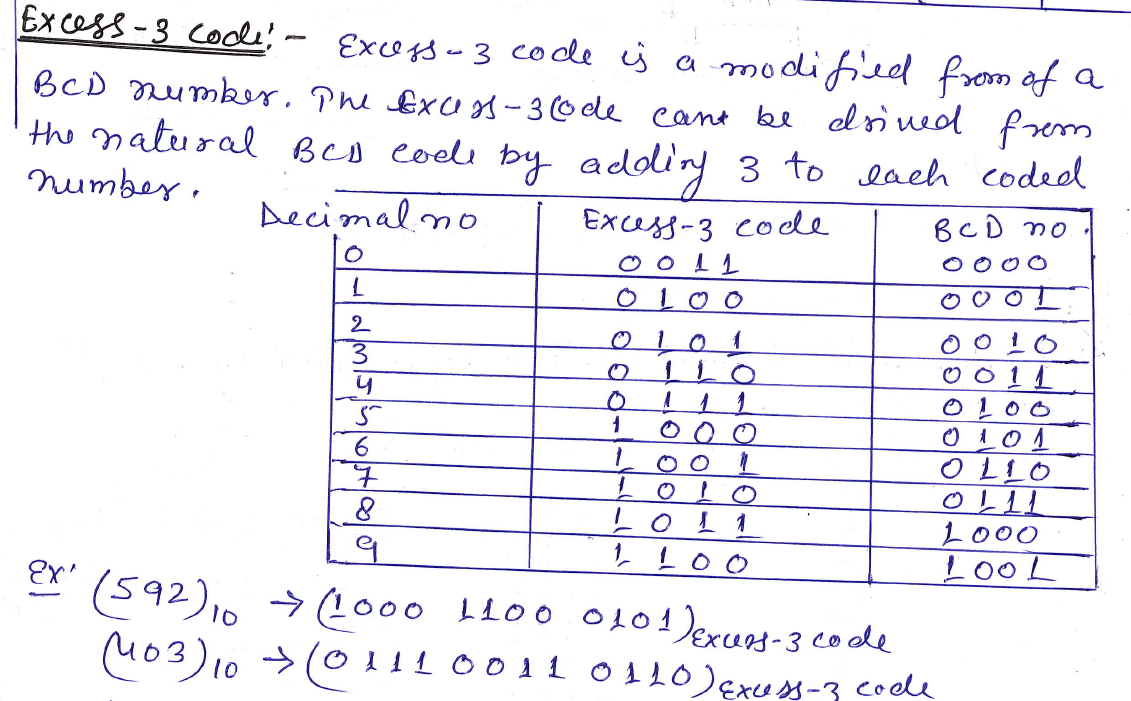 Excess-3 code:- Excess-3 code is a modified from of a
BCD number. The Excess-3 code cant be drived from
the natural BCD code by adding 3 to each coded
number.
Decimal no Excess-3 code BCD no.
0 0011 0000
1 0100 0001
2 0101 0010
3 0110 0011
4 0111 0100
5 1000 0101
6 1001 0110
7 1010 0111
8 1011 1000
9 1100 1001
Ex' (592)10 → (1000 1100 0101)Excess-3 code
(403)10 → (0111 0011 0110)Excess-3 code